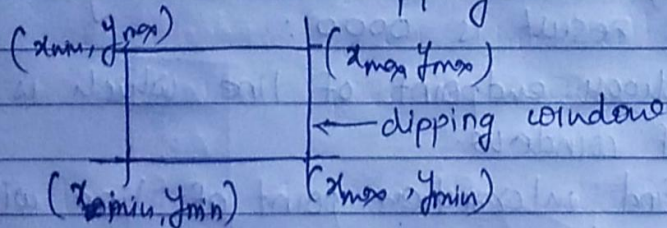 (xmin, ymax)
(xmax ymax)
clipping window
(xmin, ymin)
(xmax, ymin)